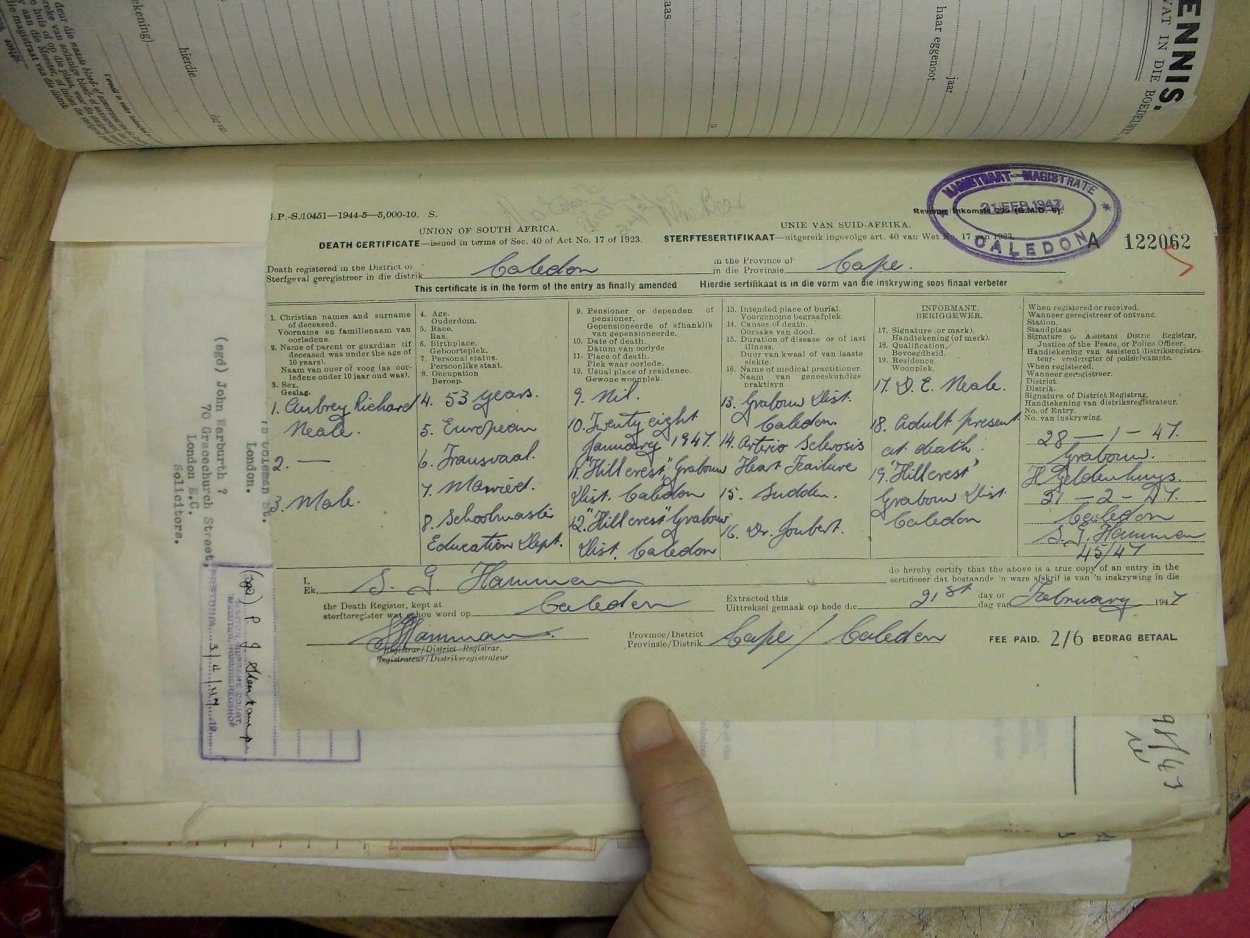 ENNIS.
WAT IN DIE
jaar
haar eggenoot
hierdie
MAGISTRAAT—MAGISTRATE
21 FEB 1947
CALEDON
J.P.-S./10451—1944-5—5,000-10. S.
UNION OF SOUTH AFRICA.
UNIE VAN SUID-AFRIKA.
DEATH CERTIFICATE—issued in terms of Sec. 40 of Act No. 17 of 1923.
STERFTESERTIFIKAAT—uitgereik ingevolge art. 40 van Wet No. 17 van 1923.
A 122062
Death registered in the District of
Sterfgeval geregistreer in die distrik
Caledon
in the Province of
in die Provinsie
Cape.
This certificate is in the form of the entry as finally amended
Hierdie sertifikaat is in die vorm van die inskrywing soos finaal verbeter
1. Christian names and surname of deceased.
Voorname en familienaam van oorledene.
2. Name of parent or guardian (if deceased was under the age of 10 years).
Naam van ouer of voog (as oorledene onder 10 jaar oud was).
3. Sex.
Geslag.
1. Aubrey Richard
Neale.
2. —
3. Male.
4. Age.
Ouderdom.
5. Race.
Ras.
6. Birthplace.
Geboorteplek.
7. Personal status.
Persoonlike staat.
8. Occupation
Beroep.
4. 53 years.
5. European
6. Transvaal.
7. Married.
8. Schoolmaster
Education Dept.
9. Pensioner or dependent of pensioner.
Gepensioeneerde of afhanklik van gepensioeneerde.
10. Date of death.
Datum van oorlye.
11. Place of death.
Plek waar oorlede.
12. Usual place of residence.
Gewone woonplek.
9. Nil.
10. Twenty eight
January 1947.
11. "Hillcrest" Grabouw
Dist. Caledon
12. "Hillcrest" Grabouw
Dist. Caledon
13. Intended place of burial.
Voorgenome begraafplek.
14. Causes of death.
Oorsake van dood.
15. Duration of disease or of last illness.
Duur van kwaal of van laaste siekte.
16. Name of medical practitioner.
Naam van geneeskundige praktisyn.
13. Grabouw Dist.
Caledon.
14. Arterio Sclerosis
Heart Failure
15. Sudden.
16. Dr. Joubert.
INFORMANT.
BERIGGEWER.
17. Signature (or mark).
Handtekening (of merk).
18. Qualification.
Bevoegdheid.
19. Residence.
Woonplek.
17. D. E. Neale.
18. Adult present
at death.
19. "Hillcrest"
Grabouw Dist.
Caledon
When registered or received.
Wanneer geregistreer of ontvang.
Station.
Standplaas
Signature of Assistant District Registrar, Justice of the Peace, or Police Officer.
Handtekening van assistent distriksregistrateur- vrederegter of polisiebeampte.
When registered.
Wanneer geregistreer.
District.
Distrik.
Signature of District Registrar.
Handtekening van distriksregistrateur.
No. of Entry.
No. van inskrywing.
28 — 1 — 47.
Grabouw.
H Geldenhuys.
21 — 2 — 47.
Caledon
S. G. Hamman
45/47
I,
Ek,
S. G. Hamman
do hereby certify that the above is a true copy of an entry in the
sertifiseer dat bostaande 'n ware afskrif is van 'n inskrywing in die
the Death Register, kept at
sterfteregister wat gehou word op
Caledon
Extracted this
Uittreksel gemaak op hede die
21st
day of
dag van
February
1947
S G Hamman.
Registrar/District Registrar.
Registrateur/Distriksregistrateur
Province/District
Provinsie/Distrik
Cape / Caledon
FEE PAID. 2/6 BEDRAG BETAAL.
London.
(sgd) John Warburth ?
70 Gracechurch Street,
London E.C.
Solicitors.